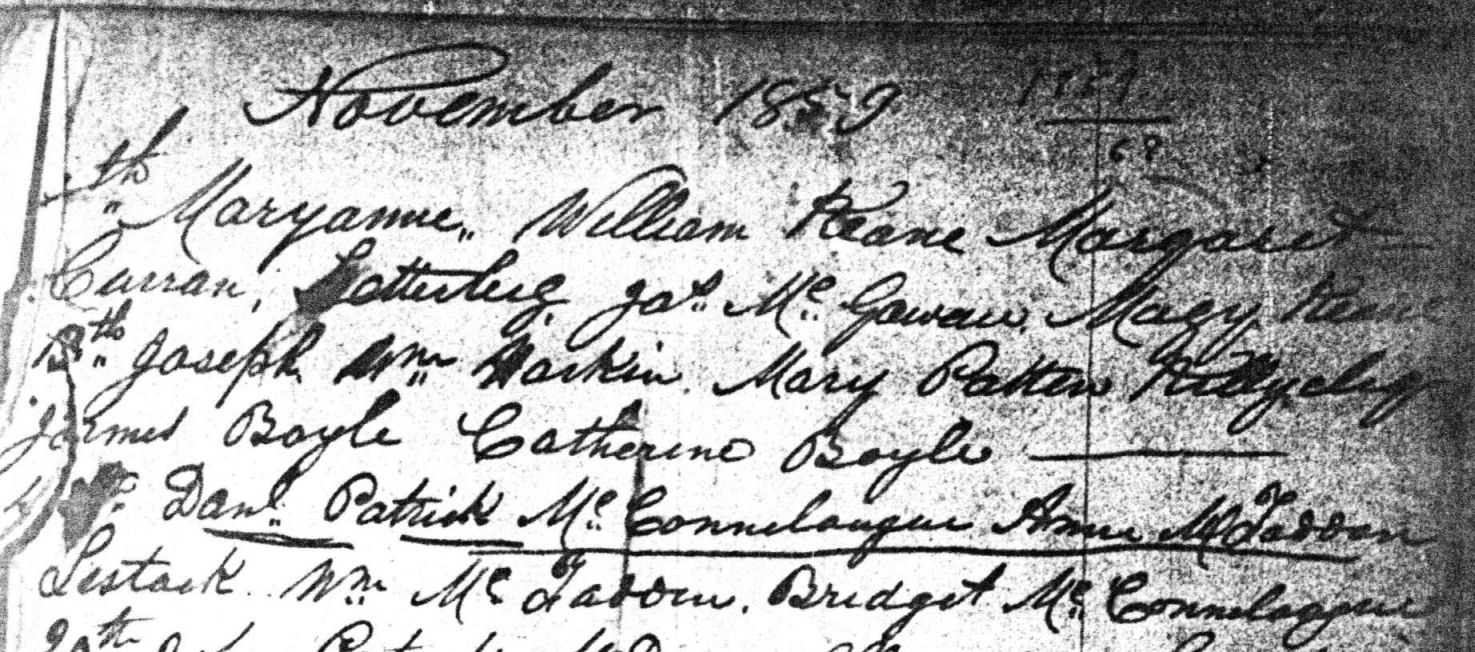 November 1859
th Maryanne, William Keane Margaret
Curran, Jas. Mc. Gowan, Mary Keane
th Joseph Wm. Harkin. Mary Patten
James Boyle Catherine Boyle
Danl. Patrick Mc. Connelougue Anne McFadden
Lestack. Wm. Mc. Fadden. Bridget Mc. Connelogue
20th Patrick